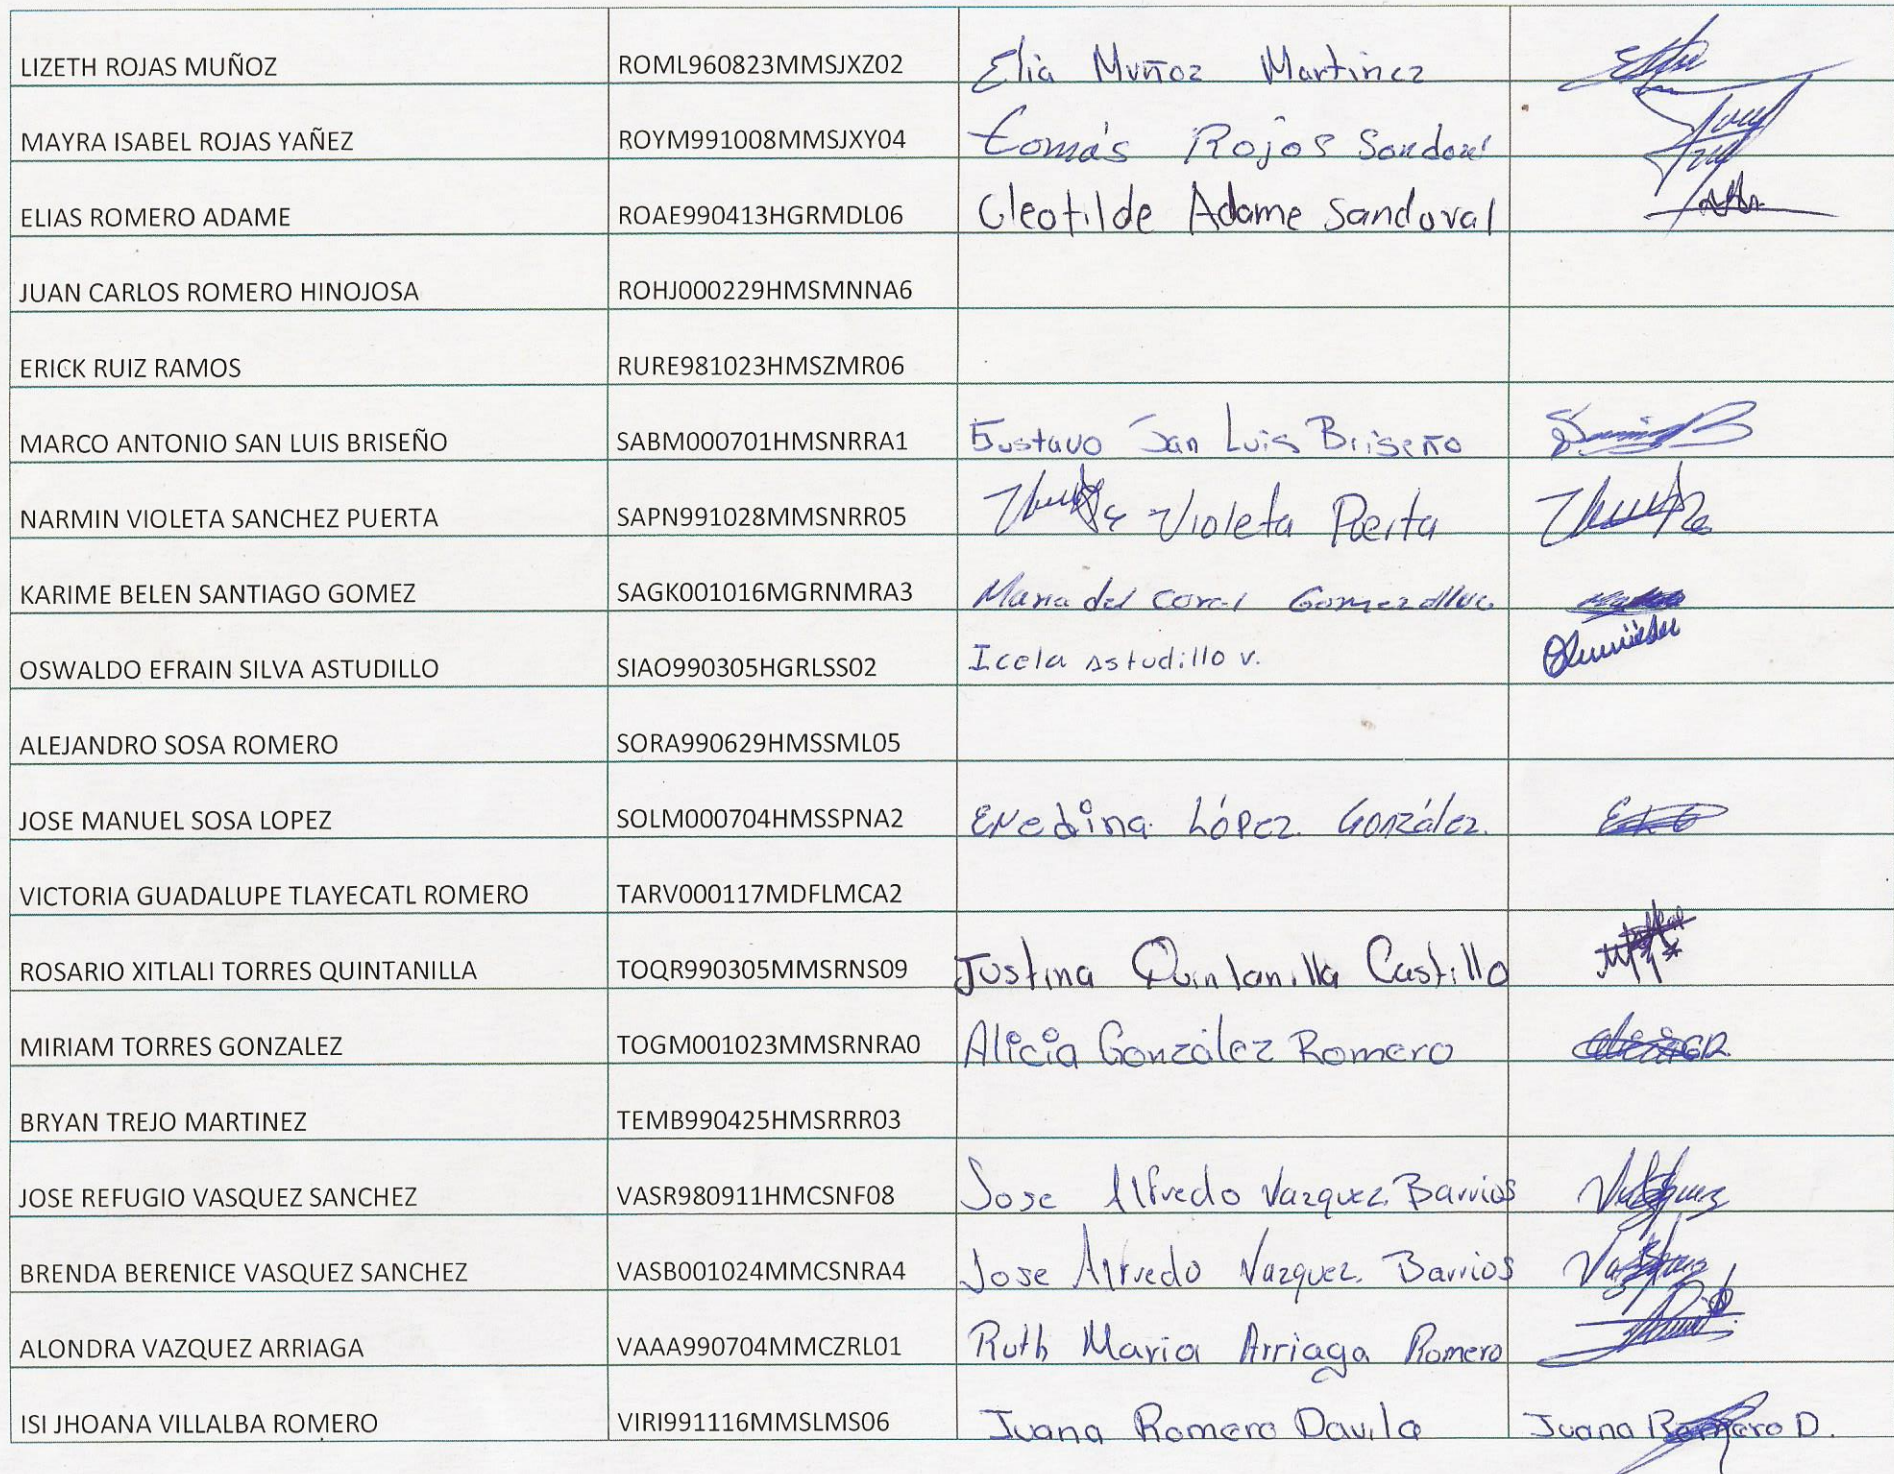 LIZETH ROJAS MUÑOZ ROML960823MMSJXZ02 Elia Muñoz Martinez
MAYRA ISABEL ROJAS YAÑEZ ROYM991008MMSJXY04 tomás Rojos Sandoval
ELIAS ROMERO ADAME ROAE990413HGRMDL06 Cleotilde Adame Sandoval
JUAN CARLOS ROMERO HINOJOSA ROHJ000229HMSMNNA6
ERICK RUIZ RAMOS RURE981023HMSZMR06
MARCO ANTONIO SAN LUIS BRISEÑO SABM000701HMSNRRA1 Gustavo San Luis Briseño
NARMIN VIOLETA SANCHEZ PUERTA SAPN991028MMSNRR05 Violeta Puerta
KARIME BELEN SANTIAGO GOMEZ SAGK001016MGRNMRA3 Maria del coral Gomez
OSWALDO EFRAIN SILVA ASTUDILLO SIAO990305HGRLSS02 Icela astudillo v.
ALEJANDRO SOSA ROMERO SORA990629HMSSML05
JOSE MANUEL SOSA LOPEZ SOLM000704HMSSPNA2 Enedina López González
VICTORIA GUADALUPE TLAYECATL ROMERO TARV000117MDFLMCA2
ROSARIO XITLALI TORRES QUINTANILLA TOQR990305MMSRNS09 Justina Quintanilla Castillo
MIRIAM TORRES GONZALEZ TOGM001023MMSRNRA0 Alicia González Romero
BRYAN TREJO MARTINEZ TEMB990425HMSRRR03
JOSE REFUGIO VASQUEZ SANCHEZ VASR980911HMCSNF08 Jose Alfredo Vazquez Barrios
BRENDA BERENICE VASQUEZ SANCHEZ VASB001024MMCSNRA4 Jose Alfredo Vazquez Barrios
ALONDRA VAZQUEZ ARRIAGA VAAA990704MMCZRL01 Ruth Maria Arriaga Romero
ISI JHOANA VILLALBA ROMERO VIRI991116MMSLMS06 Juana Romero Davila Juana Romero D.